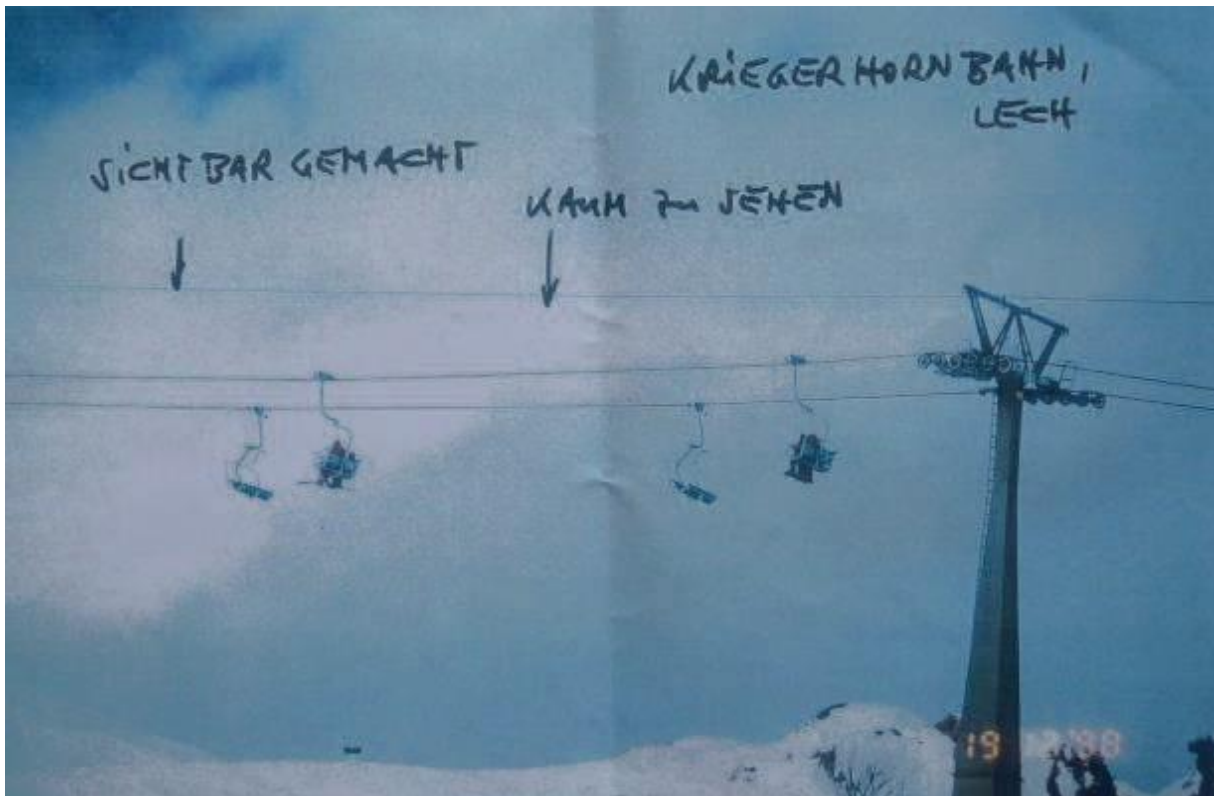 KRIEGERHORNBAHN,
LECH
SICHTBAR GEMACHT
KAUM ZU SEHEN
19